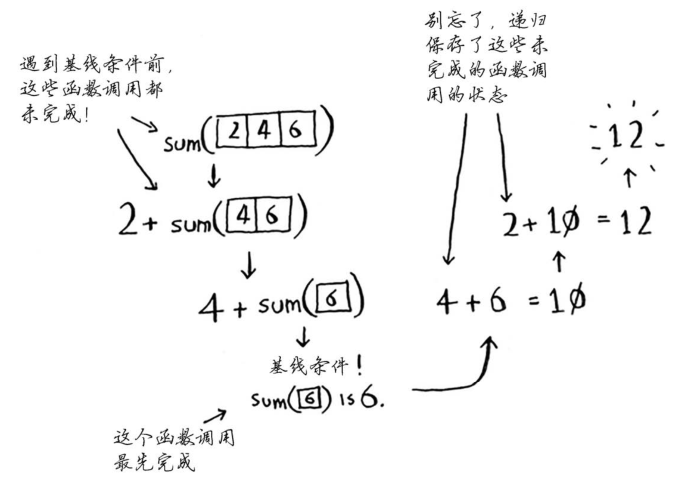 遇到基线条件前，
这些函数调用都
未完成！
sum([2 4 6])
2 + sum([4 6])
4 + sum([6])
基线条件！
sum([6]) is 6.
这个函数调用
最先完成
别忘了，递归
保存了这些未
完成的函数调
用的状态
4 + 6 = 10
2 + 10 = 12
12